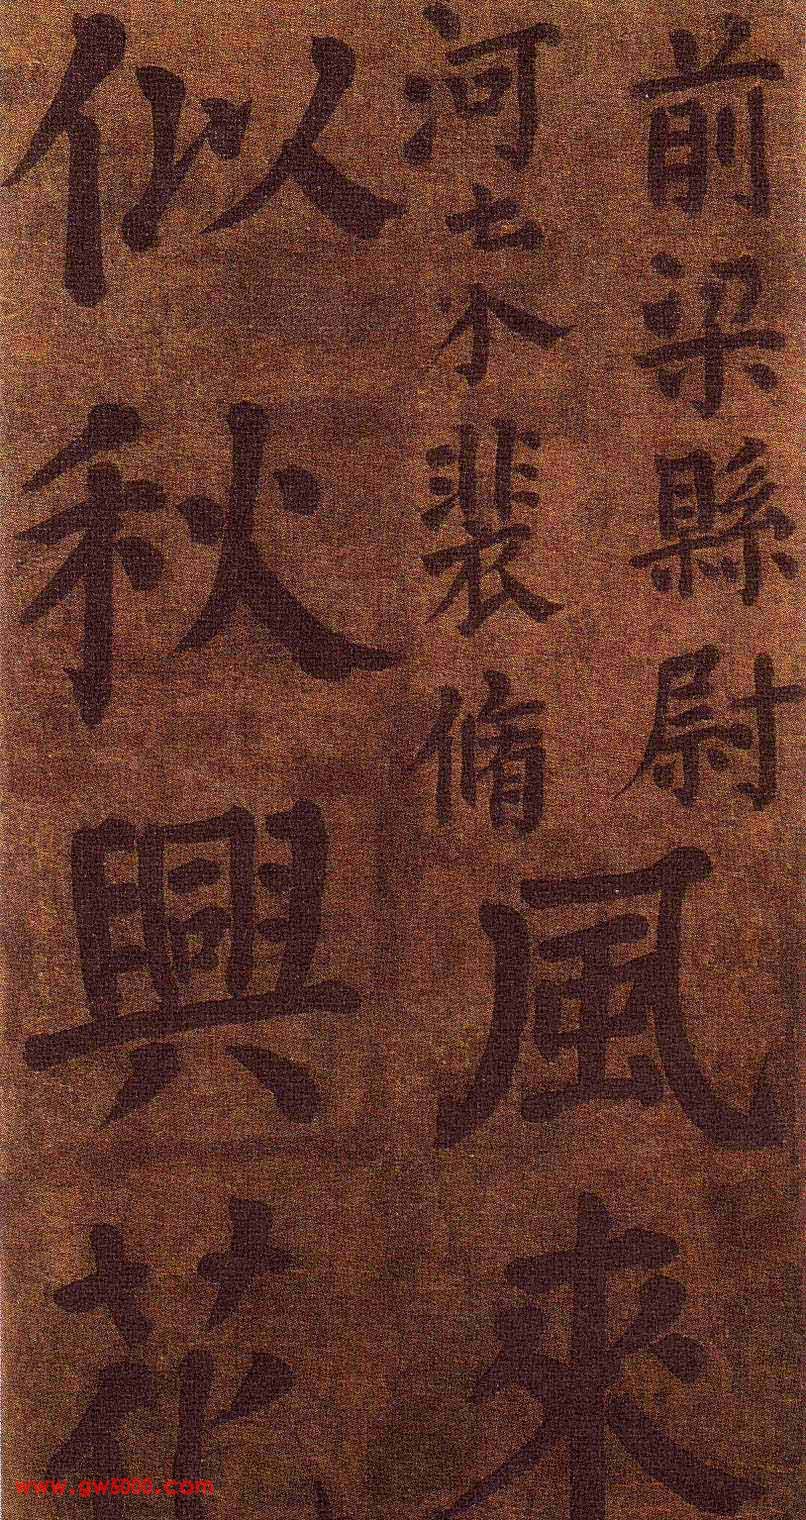 前梁縣尉
河東裴脩
風來
似秋興花
www.gw5000.com